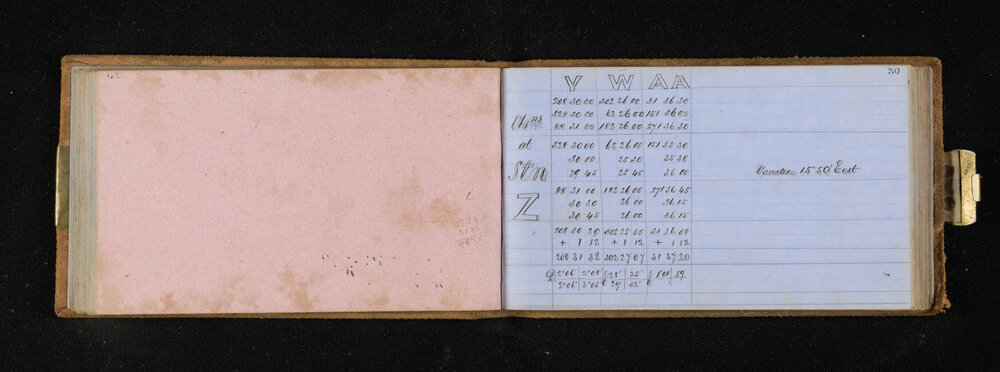 50
Y W AA
208 30 00 302 26 00 31 36 30
328 30 00 62 26 00 151 36 00
Obsns 88 31 00 182 26 00 271 36 30
at 328 30 00 62 26 00 151 35 30
30 00 25 30 35 30
Stn 29 45 25 45 36 00
88 31 00 182 26 00 271 36 45
Z 30 30 26 00 36 15
30 45 26 00 36 15
208 30 20 302 25 55 31 36 08
+ 1 12 + 1 12 + 1 12
208 31 32 302 27 07 31 37 20
2'06" 2'08" 28' 25'
2'06" 2'05" 29' 02'
Variation 15 50' East